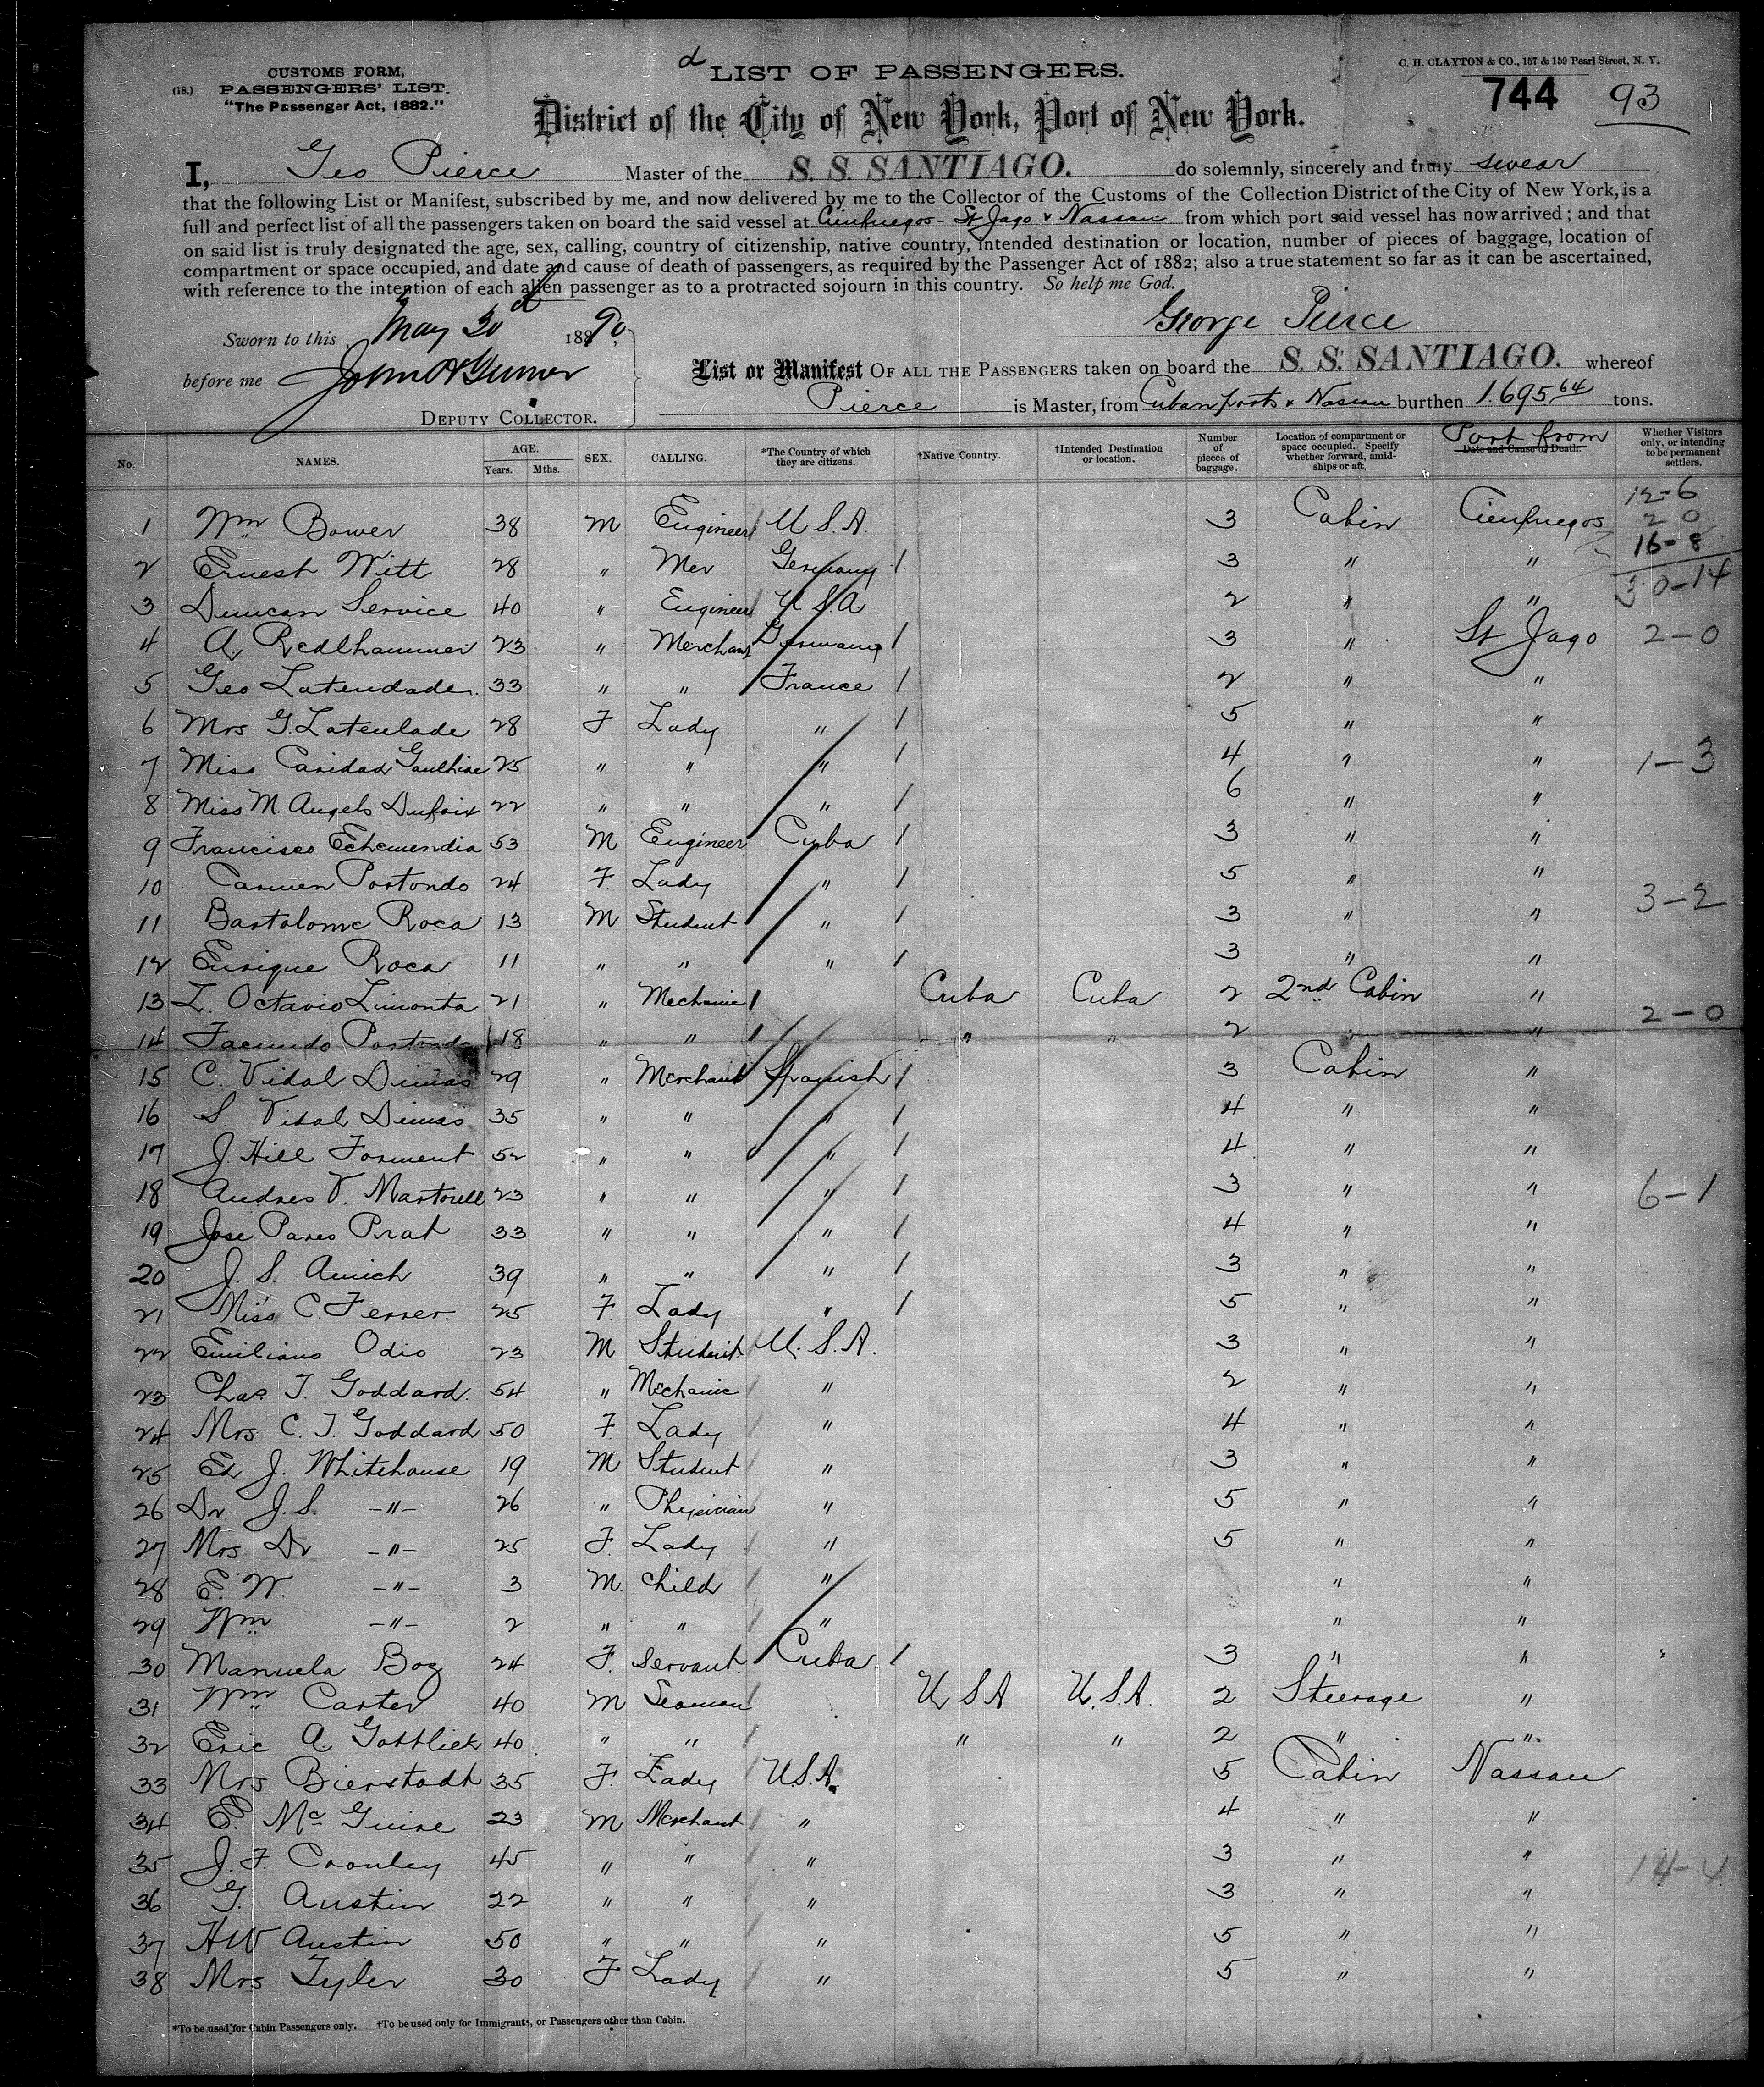 CUSTOMS FORM,
(18.) PASSENGERS' LIST.
"The Passenger Act, 1882."
LIST OF PASSENGERS.
C. H. CLAYTON & CO., 157 & 159 Pearl Street, N. Y.
744 93
District of the City of New York, Port of New York.
I, Geo Pierce Master of the S. S. SANTIAGO. do solemnly, sincerely and truly swear
that the following List or Manifest, subscribed by me, and now delivered by me to the Collector of the Customs of the Collection District of the City of New York, is a
full and perfect list of all the passengers taken on board the said vessel at Cienfuegos - St Jago & Nassau from which port said vessel has now arrived; and that
on said list is truly designated the age, sex, calling, country of citizenship, native country, intended destination or location, number of pieces of baggage, location of
compartment or space occupied, and date and cause of death of passengers, as required by the Passenger Act of 1882; also a true statement so far as it can be ascertained,
with reference to the intention of each alien passenger as to a protracted sojourn in this country. So help me God.
George Pierce
Sworn to this May 30 1890
before me
DEPUTY COLLECTOR.
List or Manifest OF ALL THE PASSENGERS taken on board the S. S. SANTIAGO. whereof
Pierce is Master, from Cuban ports & Nassau burthen 1.695 64 tons.
No. NAMES. AGE. Years. Mths. SEX. CALLING. *The Country of which they are citizens. †Native Country. †Intended Destination or location. Number of pieces of baggage. Location of compartment or space occupied. Specify whether forward, amidships or aft. Port from Date and Cause of Death. Whether Visitors only, or intending to be permanent settlers.
12-6
1 Wm Bower 38 M Engineer U.S.A. 3 Cabin Cienfuegos 2 0
16-8
2 Ernest Witt 28 " Mer Germany 3 " "
30-14
3 Duncan Service 40 " Engineer U S A 2 " "
4 A. Redlhammer 23 " Merchant Germany 3 " St Jago 2-0
5 Geo Latendade 33 " " France 2 " "
6 Mrs G. Latenlade 28 F Lady " 5 " "
7 Miss Caridad Gaulhine 25 " " " 4 " " 1-3
8 Miss M. Angels Dufaix 22 " " " 6 " "
9 Francisco Echemendia 53 M Engineer Cuba 3 " "
10 Carmen Portondo 24 F. Lady " 5 " "
3-2
11 Bartolome Roca 13 M Student " 3 " "
12 Enrique Roca 11 " " " 3 " "
13 L. Octavio Limonta 21 " Mechanic Cuba Cuba 2 2nd Cabin "
2-0
14 Facundo Portondo 18 " " " " 2 " "
15 C. Vidal Dimas 29 " Merchant Spanish 3 Cabin "
16 S. Vidal Dimas 35 " " " 4 " "
17 J. Hill Forment 52 " " " 4 " "
18 Andres V. Martorell 23 " " " 3 " " 6-1
19 Jose Pares Prat 33 " " " 4 " "
20 J. S. Amich 39 " " " 3 " "
21 Miss C. Ferrer 25 F. Lady " 5 " "
22 Emiliano Odio 23 M Student U. S. A. 3 " "
23 Chas. T. Goddard. 54 " Mechanic " 2 " "
24 Mrs C. T. Goddard 50 F. Lady " 4 " "
25 Ed J. Whitehouse 19 M Student " 3 " "
26 Dr J. S. -"- 26 " Physician " 5 " "
27 Mrs Dr -"- 25 F. Lady " 5 " "
28 E. W. -"- 3 M. Child " " "
29 Wm -"- 2 " " " " "
30 Manuela Boz 24 F. Servant. Cuba 3 " "
31 Wm Carter 40 M Seaman U S A U.S.A. 2 Steerage "
32 Eric A. Gottlieb 40 " " " " 2 " "
33 Mrs Bierstadt 35 F. Lady U.S.A. 5 Cabin Nassau
34 E. Mc Guire 23 M Merchant " 4 " "
35 J. F. Cronley 45 " " " 3 " " 14-
36 G. Austin 22 " " " 3 " "
37 HW Austin 50 " " " 5 " "
38 Mrs Tyler 30 F Lady " 5 " "
*To be used for Cabin Passengers only. †To be used only for Immigrants, or Passengers other than Cabin.